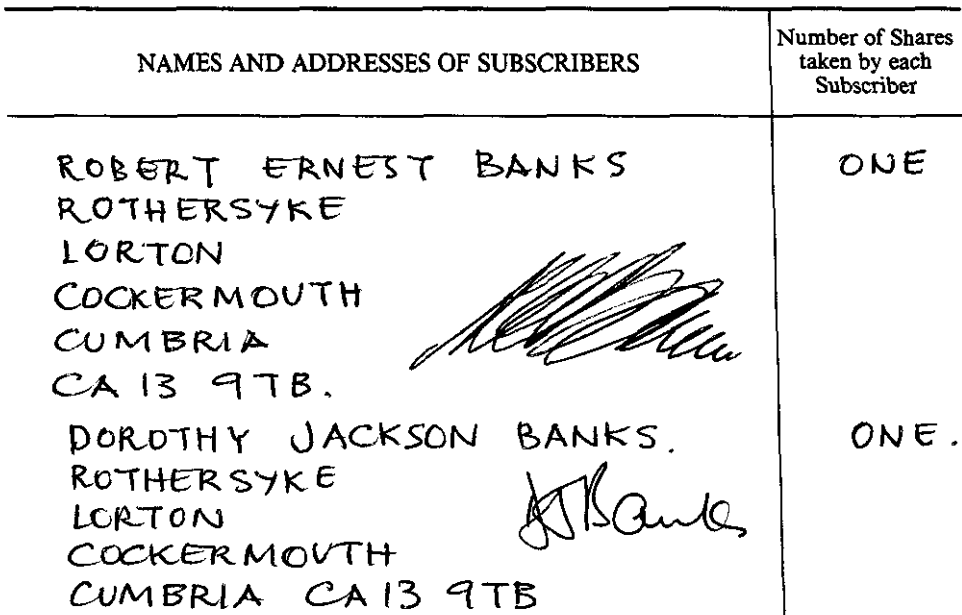 NAMES AND ADDRESSES OF SUBSCRIBERS
Number of Shares
taken by each
Subscriber
ROBERT ERNEST BANKS ONE
ROTHERSYKE
LORTON
COCKERMOUTH
CUMBRIA
CA 13 9TB.
DOROTHY JACKSON BANKS. ONE.
ROTHERSYKE
LORTON
DJBanks
COCKERMOUTH
CUMBRIA CA 13 9TB